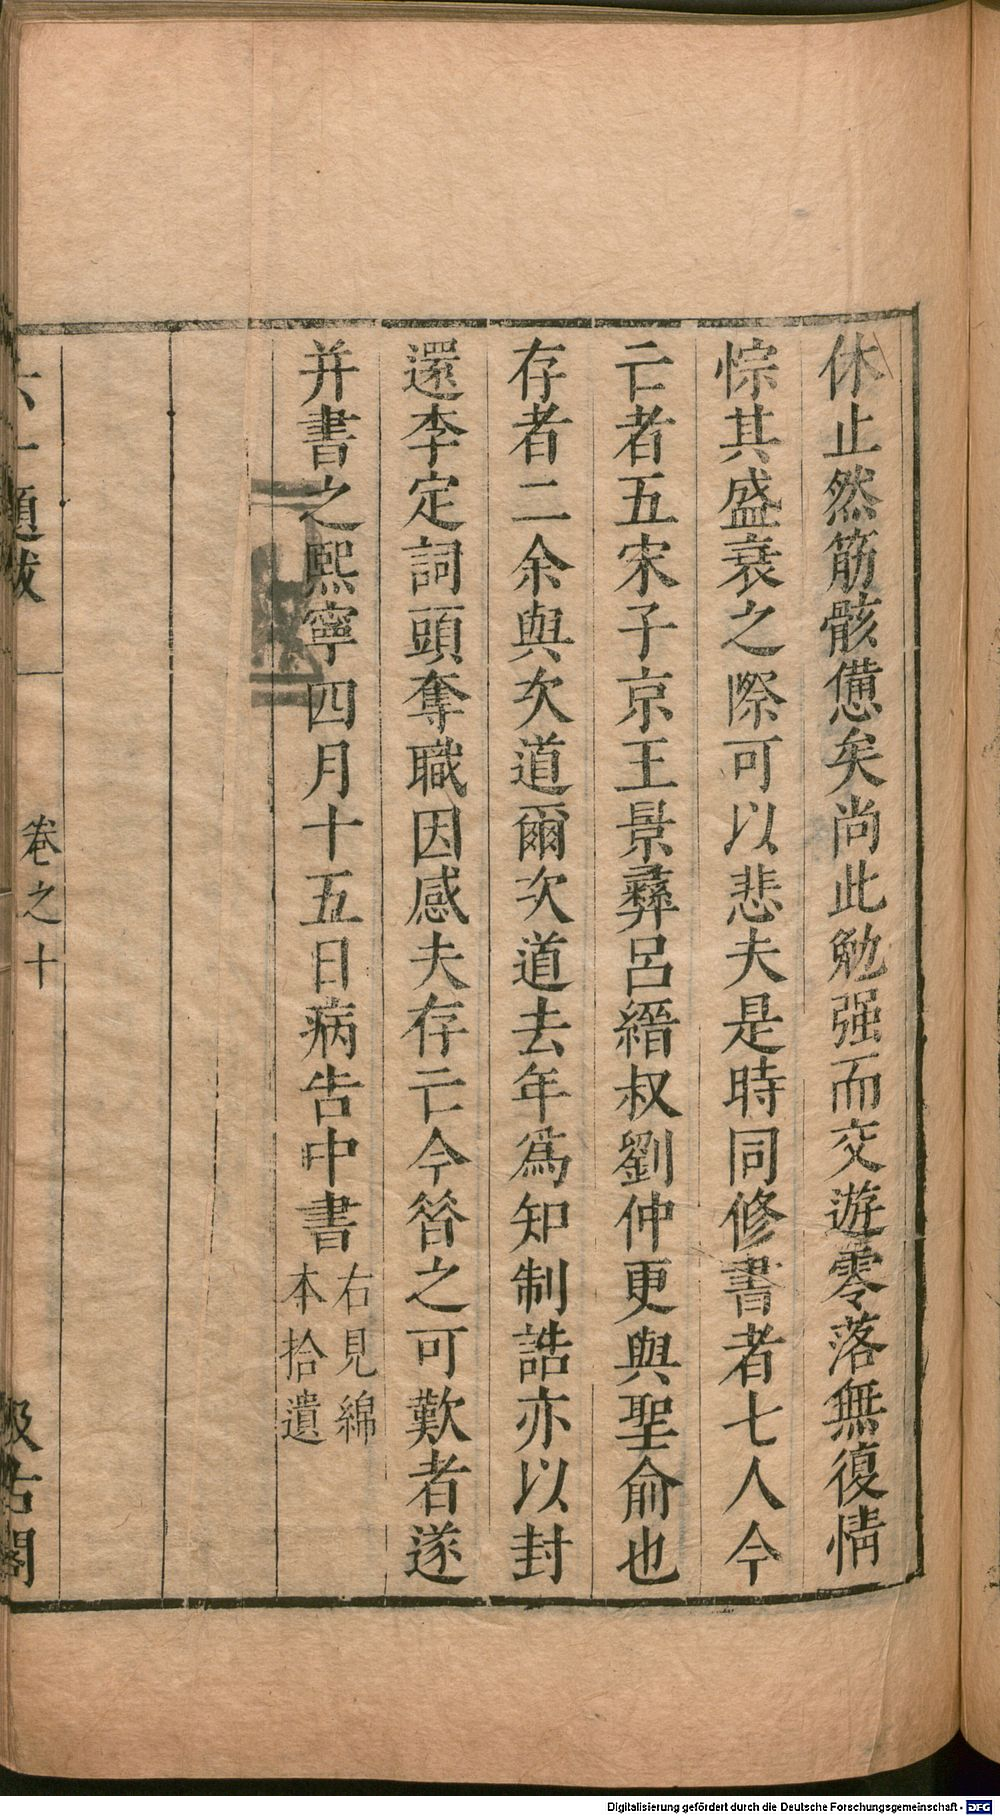 休止然筋骸憊矣尚此勉强而交遊零落無復情
悰其盛衰之際可以悲夫是時同修書者七人今
亡者五宋子京王景彝呂縉叔劉仲更與聖俞也
存者二余與次道爾次道去年爲知制誥亦以封
還李定詞頭奪職因感夫存亡今昝之可歎者遂
并書之熙寧四月十五日病告中書
右見綿
本拾遺
六一題跋
卷之十
汲古閣
Digitalisierung gefördert durch die Deutsche Forschungsgemeinschaft - DFG